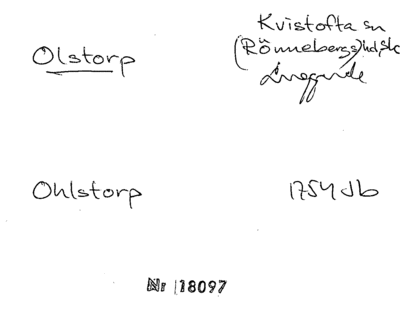 Olstorp
Kvistofta sn
(Rönnebergs) hd, Sk
Luggude
Ohlstorp
1754 Jb
Nr 18097